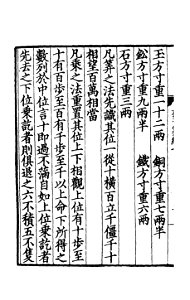 玉方寸重一十二兩　銅方寸重七兩半
鉛方寸重九兩半　鐵方寸重六兩
石方寸重三兩
凡算之法先識其位一從十橫百立千僵千十
相望百萬相當
凡乘之法重置其位上下相觀上位有十步至
十有百步至百有千步至千以上命下所得之
數列於中位言十即過不滿自如上位乘訖者
先去之下位乘訖者則俱退之六不積五不隻